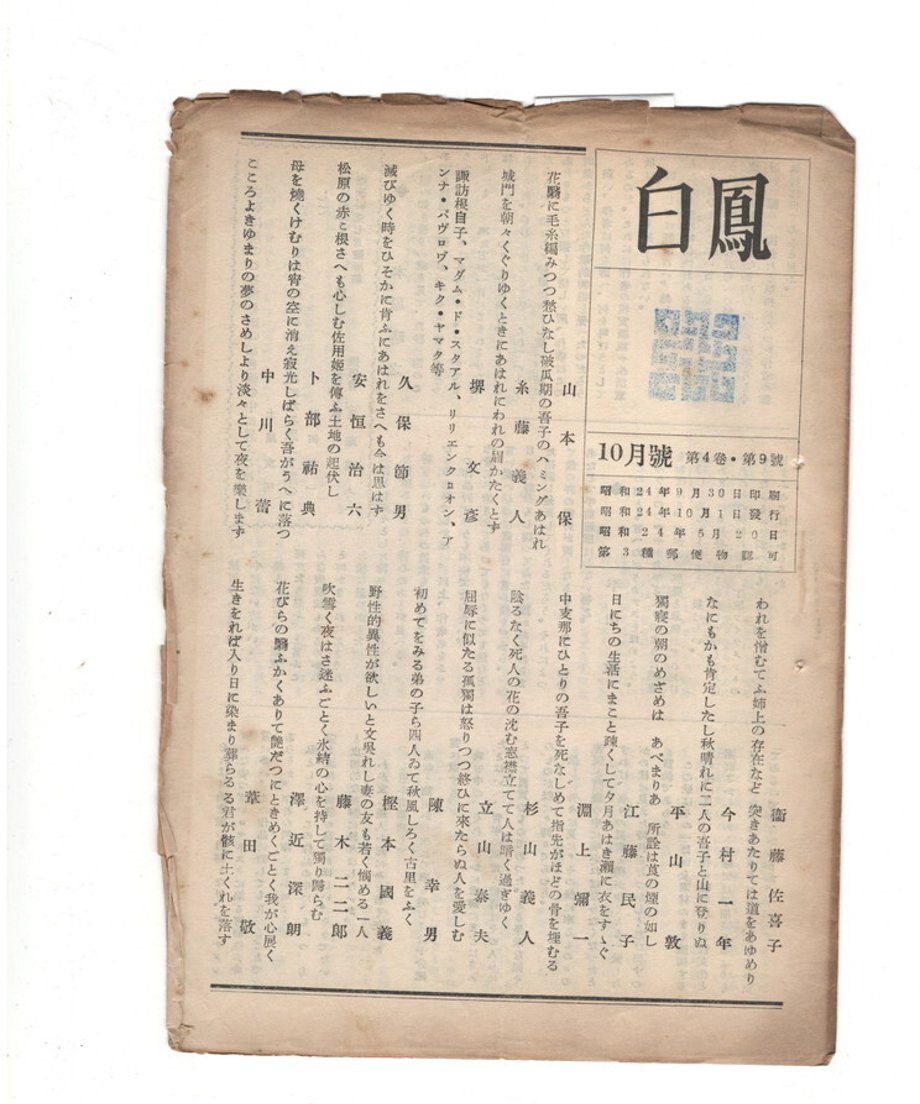 白鳳
10月號 第4卷・第9號
昭和24年9月30日印刷
昭和24年10月1日發行
昭和24年5月20日
第3種郵便物認可
山本保
花翳に毛糸編みつつ愁ひなし破瓜期の吾子のハミングあはれ
糸藤義人
城門を朝々くぐりゆくときにあはれにわれの眉かたくとず
堺文彦
諏訪根自子、マダム・ド・スタアル、リリエンクロオン、ア
ンナ・パヴロヴ、キク・ヤマタ等
久保節男
滅びゆく時をひそかに肯ふにあはれをさへも今は思はず
安恒治六
松原の赤こ根さへも心しむ佐用姫を傳ふ土地の起伏し
卜部祐典
母を燒くけむりは宵の空に消え寂光しばらく吾がうへに落つ
中川蕾
こころよきゆまりの夢のさめしより淡々として夜を樂しまず
衞藤佐喜子
われを憎むてふ姉上の存在など 突きあたりては道をあゆめり
今村一年
なにもかも肯定したし秋晴れに二人の吾子と山に登りぬ
平山敦
獨寢の朝のめざめは あべまりあ 所詮は莨の煙の如し
江藤民子
日にちの生活にまこと疎くして夕月あはき瀨に衣をすゝぐ
淵上彌一
中支那にひとりの吾子を死なしめて指先がほどの骨を埋むる
杉山義人
陰るなく死人の花の沈む窓襟立てて人は暗く過ぎゆく
立山泰夫
屈辱に似たる孤獨は怒りつつ終ひに來たらぬ人を愛しむ
陳幸男
初めてをみる弟の子ら四人ゐて秋風しろく古里をふく
樫本國義
野性的異性が欲しいと文吳れし妻の友も若く惱める一人
藤木二二郎
吹雪く夜はさ迷ふごとく氷結の心を持して獨り歸らむ
澤近深朗
花びらの翳ふかくありて艶だつにときめくごとく我が心展く
葦田敬
生きをれば入り日に染まり葬らる る君が骸に土くれを落す